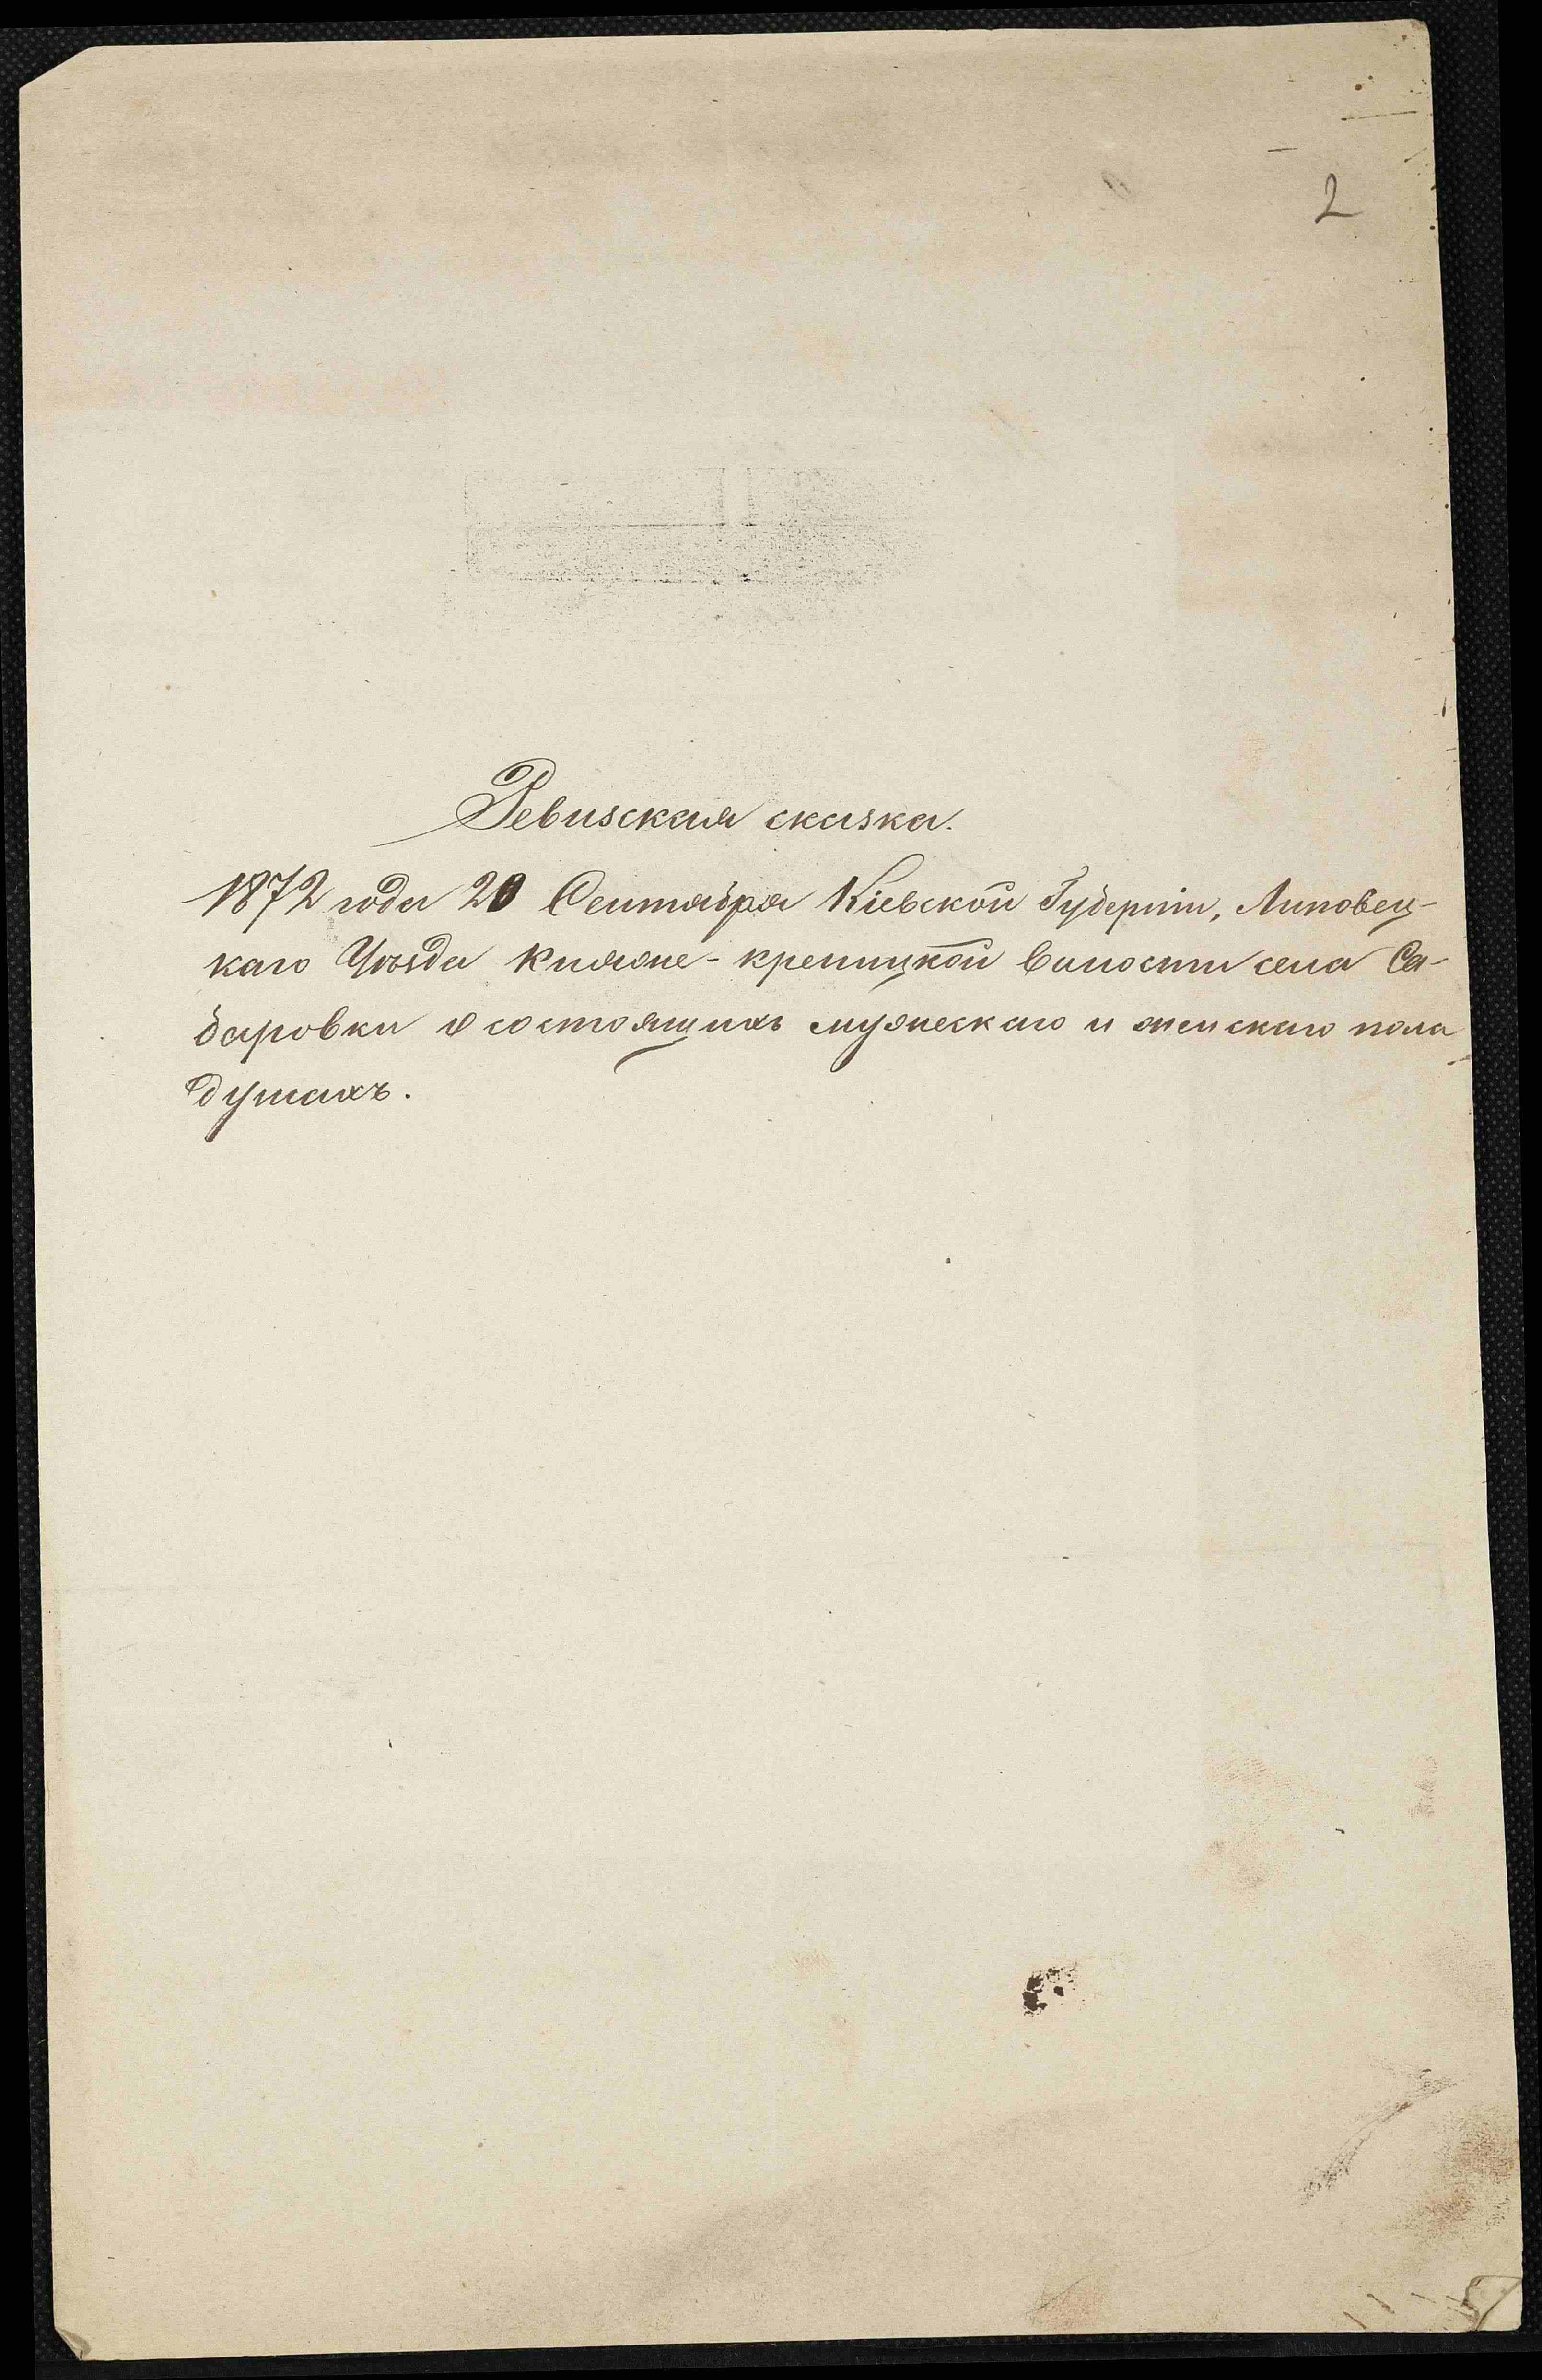 2
Ревизская сказка.
1872 года 20 Сентября Кіевской Губерніи, Липовец-
каго Уѣзда Княже-креницкой волости села Са-
баровки о состоящихъ мужескаго и женскаго пола
душахъ.